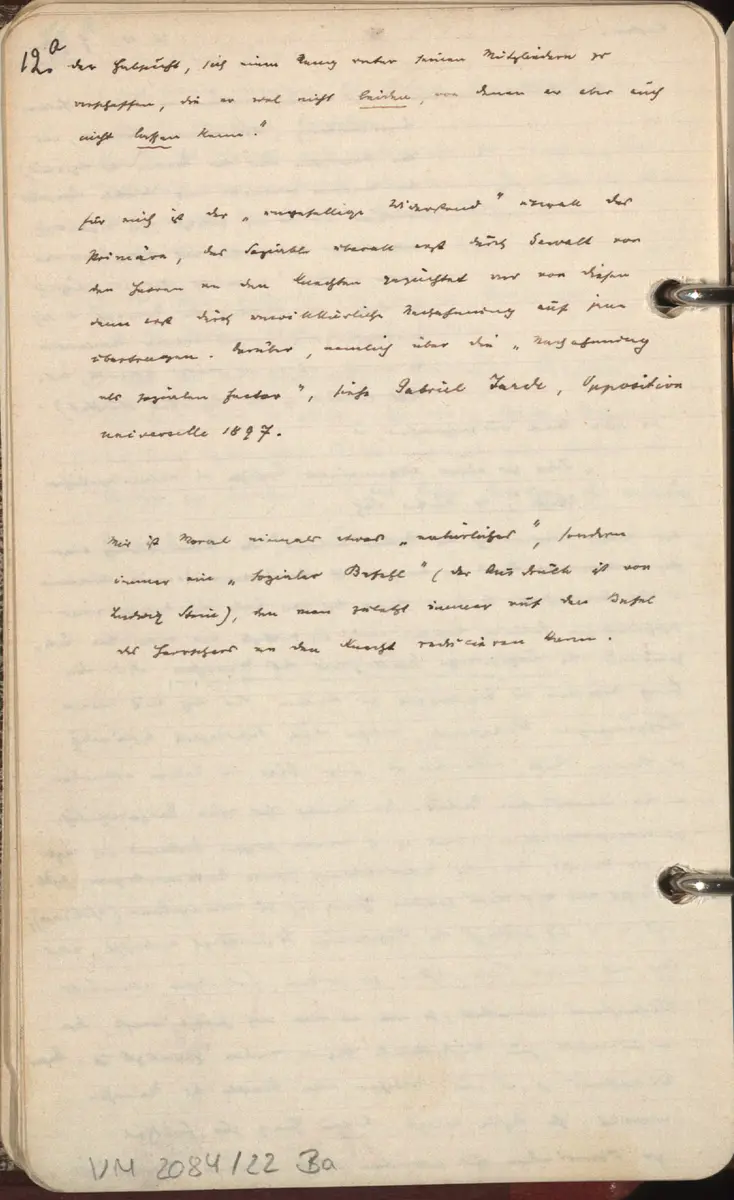 12a
der Habsucht, sich einen Rang unter seinen Mitgliedern zu
verschaffen, die er wol nicht leiden, von denen er aber auch
nicht lassen kann."
für mich ist der „ungesellige Widerstand" überall das
Primäre, das Soziable überall erst durch Gewalt von
den Herren an den Knechten gezüchtet und von diesen
dann erst durch unwillkürliche Nachahmung auf jene
übertragen. Darüber, nämlich über die „Nachahmung
als sozialen Factor", siehe Gabriel Tarde, Opposition
universelle 1897.
Mir ist Moral niemals etwas „natürliches", sondern
immer ein „sozialer Befehl" (der Ausdruck ist von
Ludwig Stein), den man zuletzt immer auf den Befel
des Herrschers an den Knecht reduciren kann.
VM 2084/22 Ba